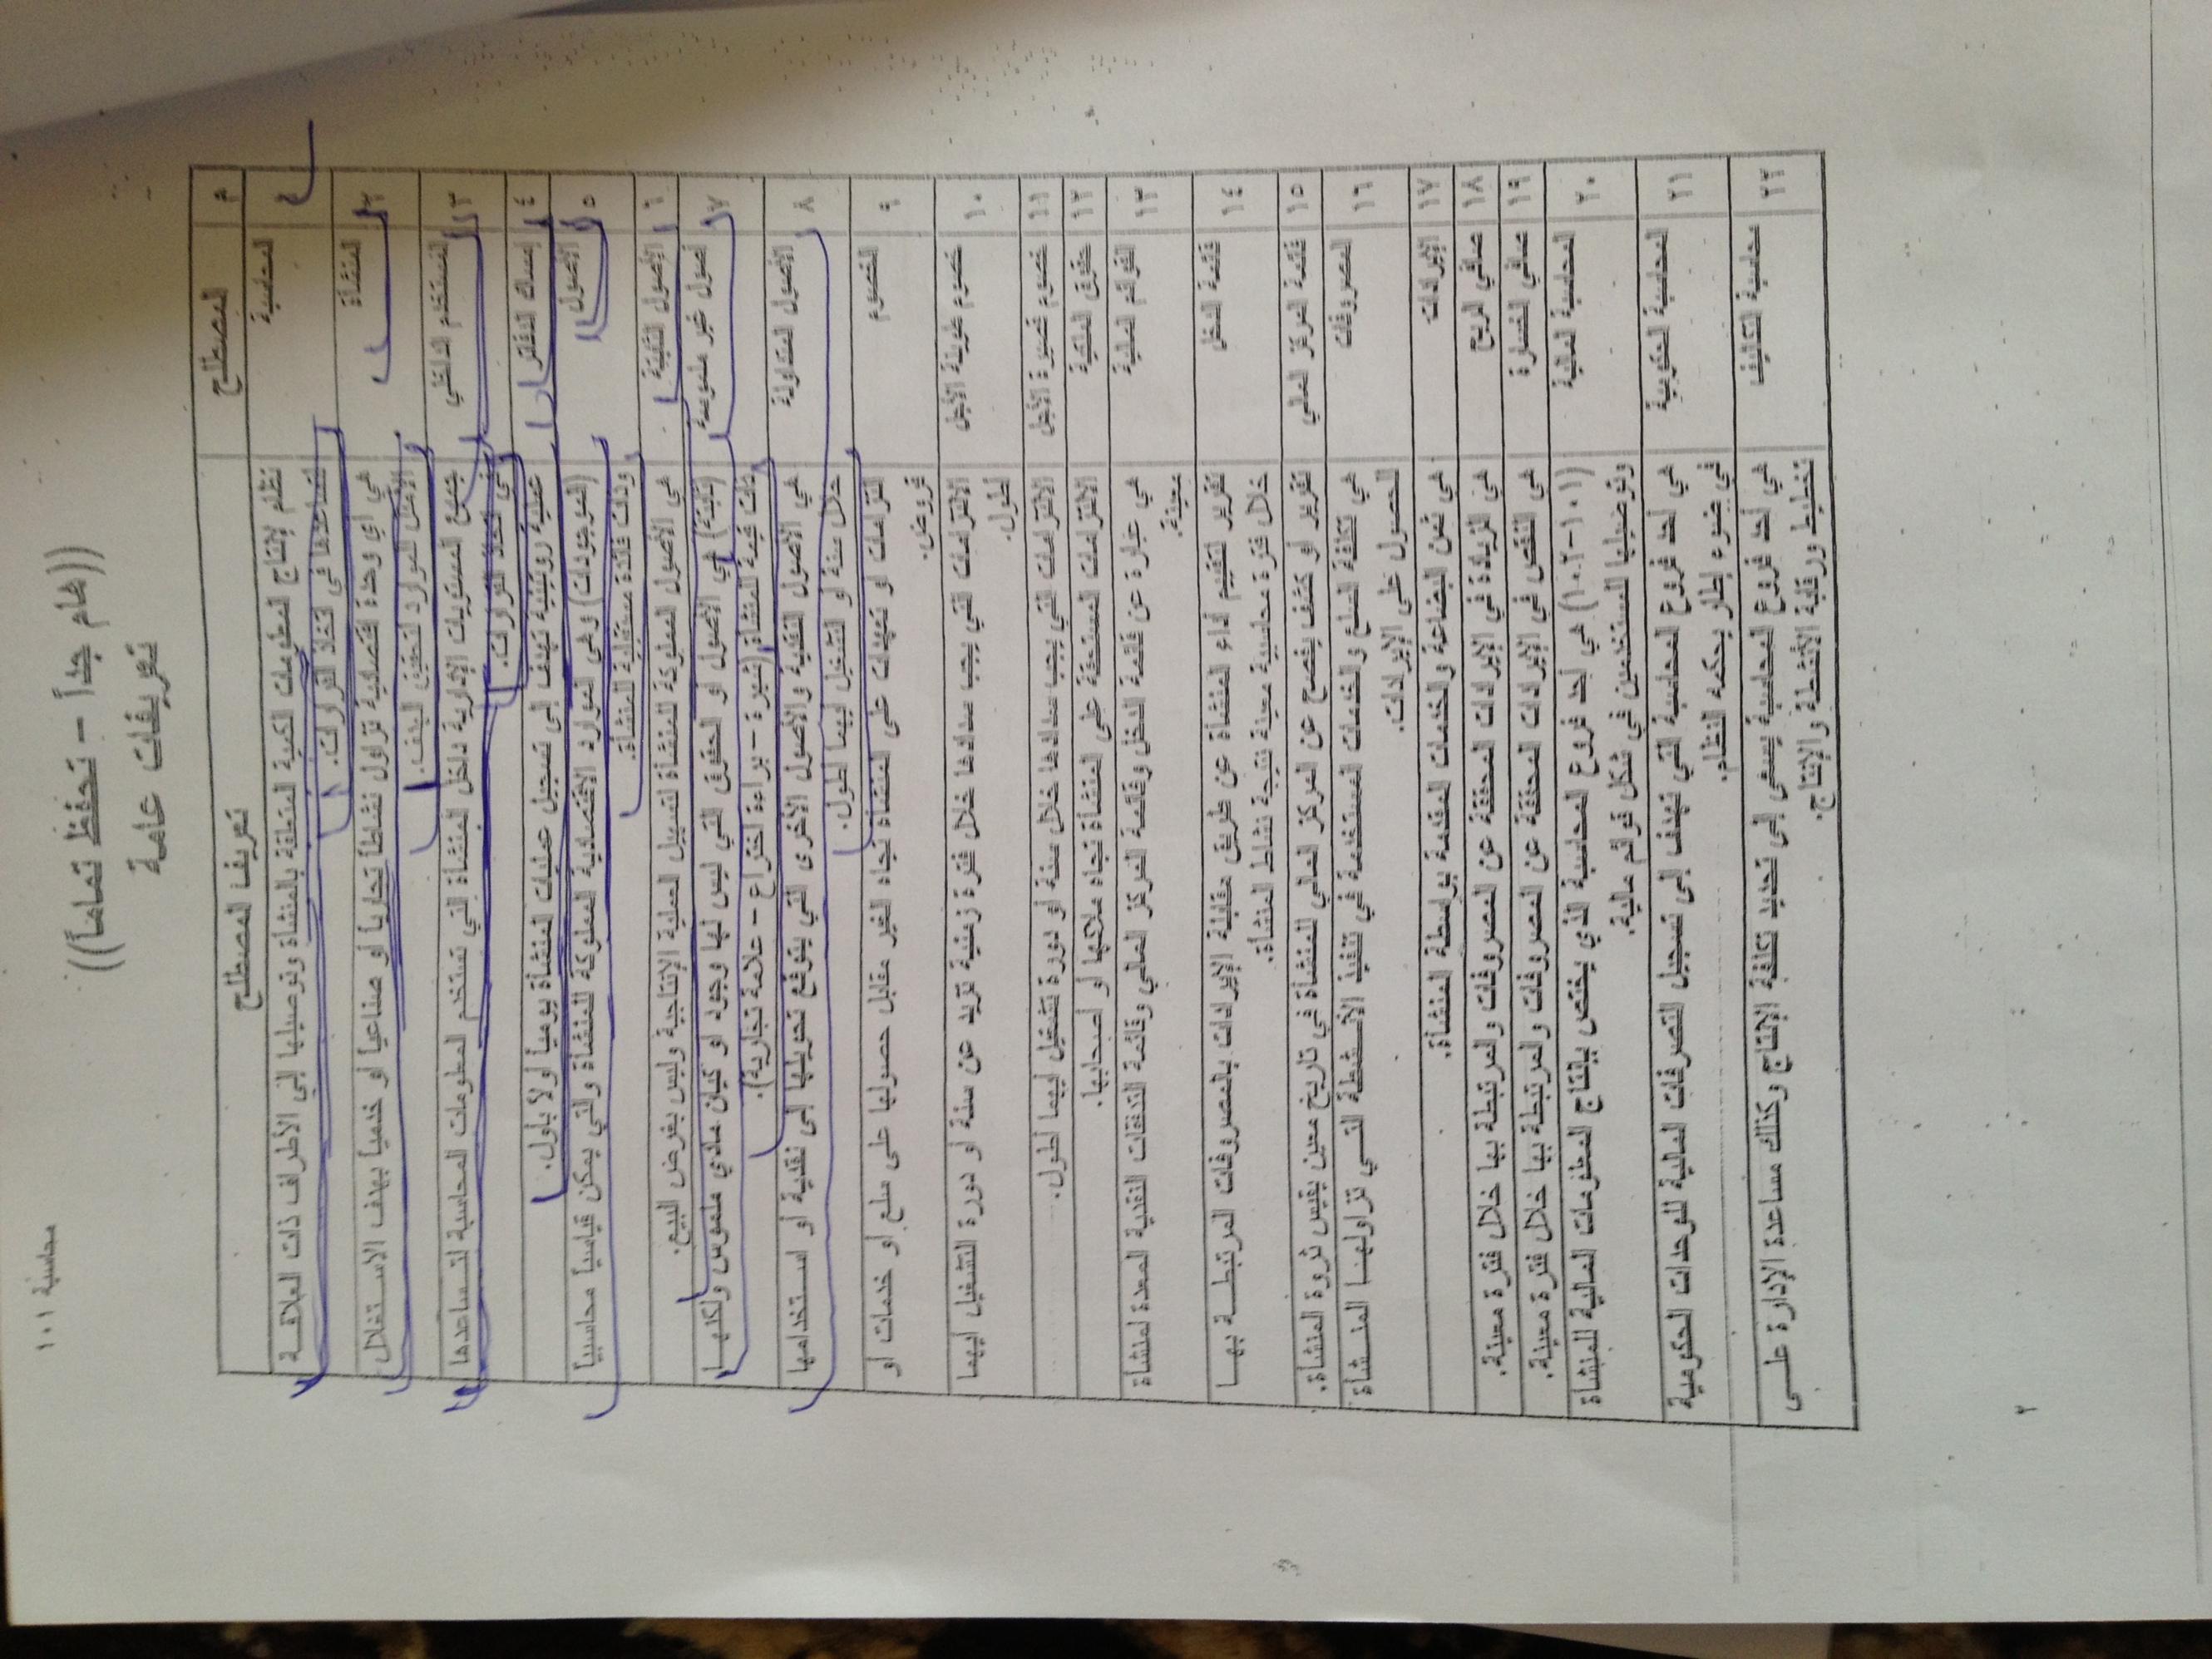 محاسبة ١٠١
((هام جداً – تحفظ تماماً))
تعريفات عامة
م المصطلح تعريف المصطلح
١ المحاسبة نظام لإنتاج المعلومات الكمية المتعلقة بالمنشأة وتوصيلها إلى الأطراف ذات العلاقة
لمساعدتها في اتخاذ القرارات.
٢ المنشأة هي أي وحدة اقتصادية تزاول نشاطاً تجارياً أو صناعياً أو خدمياً بهدف الاستغلال
الأمثل للموارد لتحقيق الهدف.
٣ المستخدم الداخلي جميع المستويات الإدارية داخل المنشأة التي تستخدم المعلومات المحاسبية لتساعدها
في اتخاذ القرارات.
٤ إمساك الدفاتر عملية روتينية تهدف إلى تسجيل عمليات المنشأة يومياً أولاً بأول.
٥ الأصول (الموجودات) وهي الموارد الاقتصادية المملوكة للمنشأة والتي يمكن قياسها محاسبياً
وذات فائدة مستقبلية للمنشأة.
٦ الأصول الثابتة هي الأصول المملوكة للمنشأة لتسهيل العملية الإنتاجية وليس بغرض البيع.
٧ أصول غير ملموسة (ثابتة) هي الأصول أو الحقوق التي ليس لها وجود أو كيان مادي ملموس ولكنها
ذات قيمة للمنشأة (شهرة – براءة اختراع – علامة تجارية).
٨ الأصول المتداولة هي الأصول النقدية والأصول الأخرى التي يتوقع تحويلها إلى نقدية أو استخدامها
خلال سنة أو التشغيل أيهما أطول.
٩ الخصوم التزامات أو تعهدات على المنشأة تجاه الغير مقابل حصولها على سلع أو خدمات أو
قروض.
١٠ خصوم طويلة الأجل الالتزامات التي يجب سدادها خلال فترة زمنية تزيد عن سنة أو دورة التشغيل أيهما
أطول.
١١ خصوم قصيرة الأجل الالتزامات التي يجب سدادها خلال سنة أو دورة تشغيل أيهما أطول.
١٢ حقوق الملكية الالتزامات المستحقة على المنشأة تجاه ملاكها أو أصحابها.
١٣ القوائم المالية هي عبارة عن قائمة الدخل وقائمة المركز المالي وقائمة التدفقات النقدية المعدة لمنشأة
معينة.
١٤ قائمة الدخل تقرير لتقييم أداء المنشأة عن طريق مقابلة الإيرادات بالمصروفات المرتبطة بها
خلال فترة محاسبية معينة نتيجة نشاط المنشأة.
١٥ قائمة المركز المالي تقرير أو كشف يفصح عن المركز المالي للمنشأة في تاريخ معين لثروة المنشأة.
١٦ المصروفات هي تكلفة السلع والخدمات المستخدمة في تنفيذ الأنشطة التي تزاولها المنشأة
الحصول على الإيرادات.
١٧ الإيرادات هي ثمن البضاعة والخدمات المقدمة بواسطة المنشأة.
١٨ صافي الربح هي الزيادة في الإيرادات المحققة عن المصروفات والمرتبطة بها خلال فترة معينة.
١٩ صافي الخسارة هي النقص في الإيرادات المحققة عن المصروفات والمرتبطة بها خلال فترة معينة.
٢٠ المحاسبة المالية (١٠١-١٠٢) هي أحد فروع المحاسبة الذي يختص بإنتاج المعلومات المالية للمنشأة
وتوصيلها للمستخدمين في شكل قوائم مالية.
٢١ المحاسبة الحكومية هي أحد فروع المحاسبة التي تهدف إلى تسجيل التصرفات المالية للوحدات الحكومية
في ضوء إطار يحدده النظام.
٢٢ محاسبة التكاليف هي أحد فروع المحاسبة يسعى إلى تحديد تكلفة الإنتاج وكذلك مساعدة الإدارة على
تخطيط ورقابة الأنشطة والإنتاج.
٢